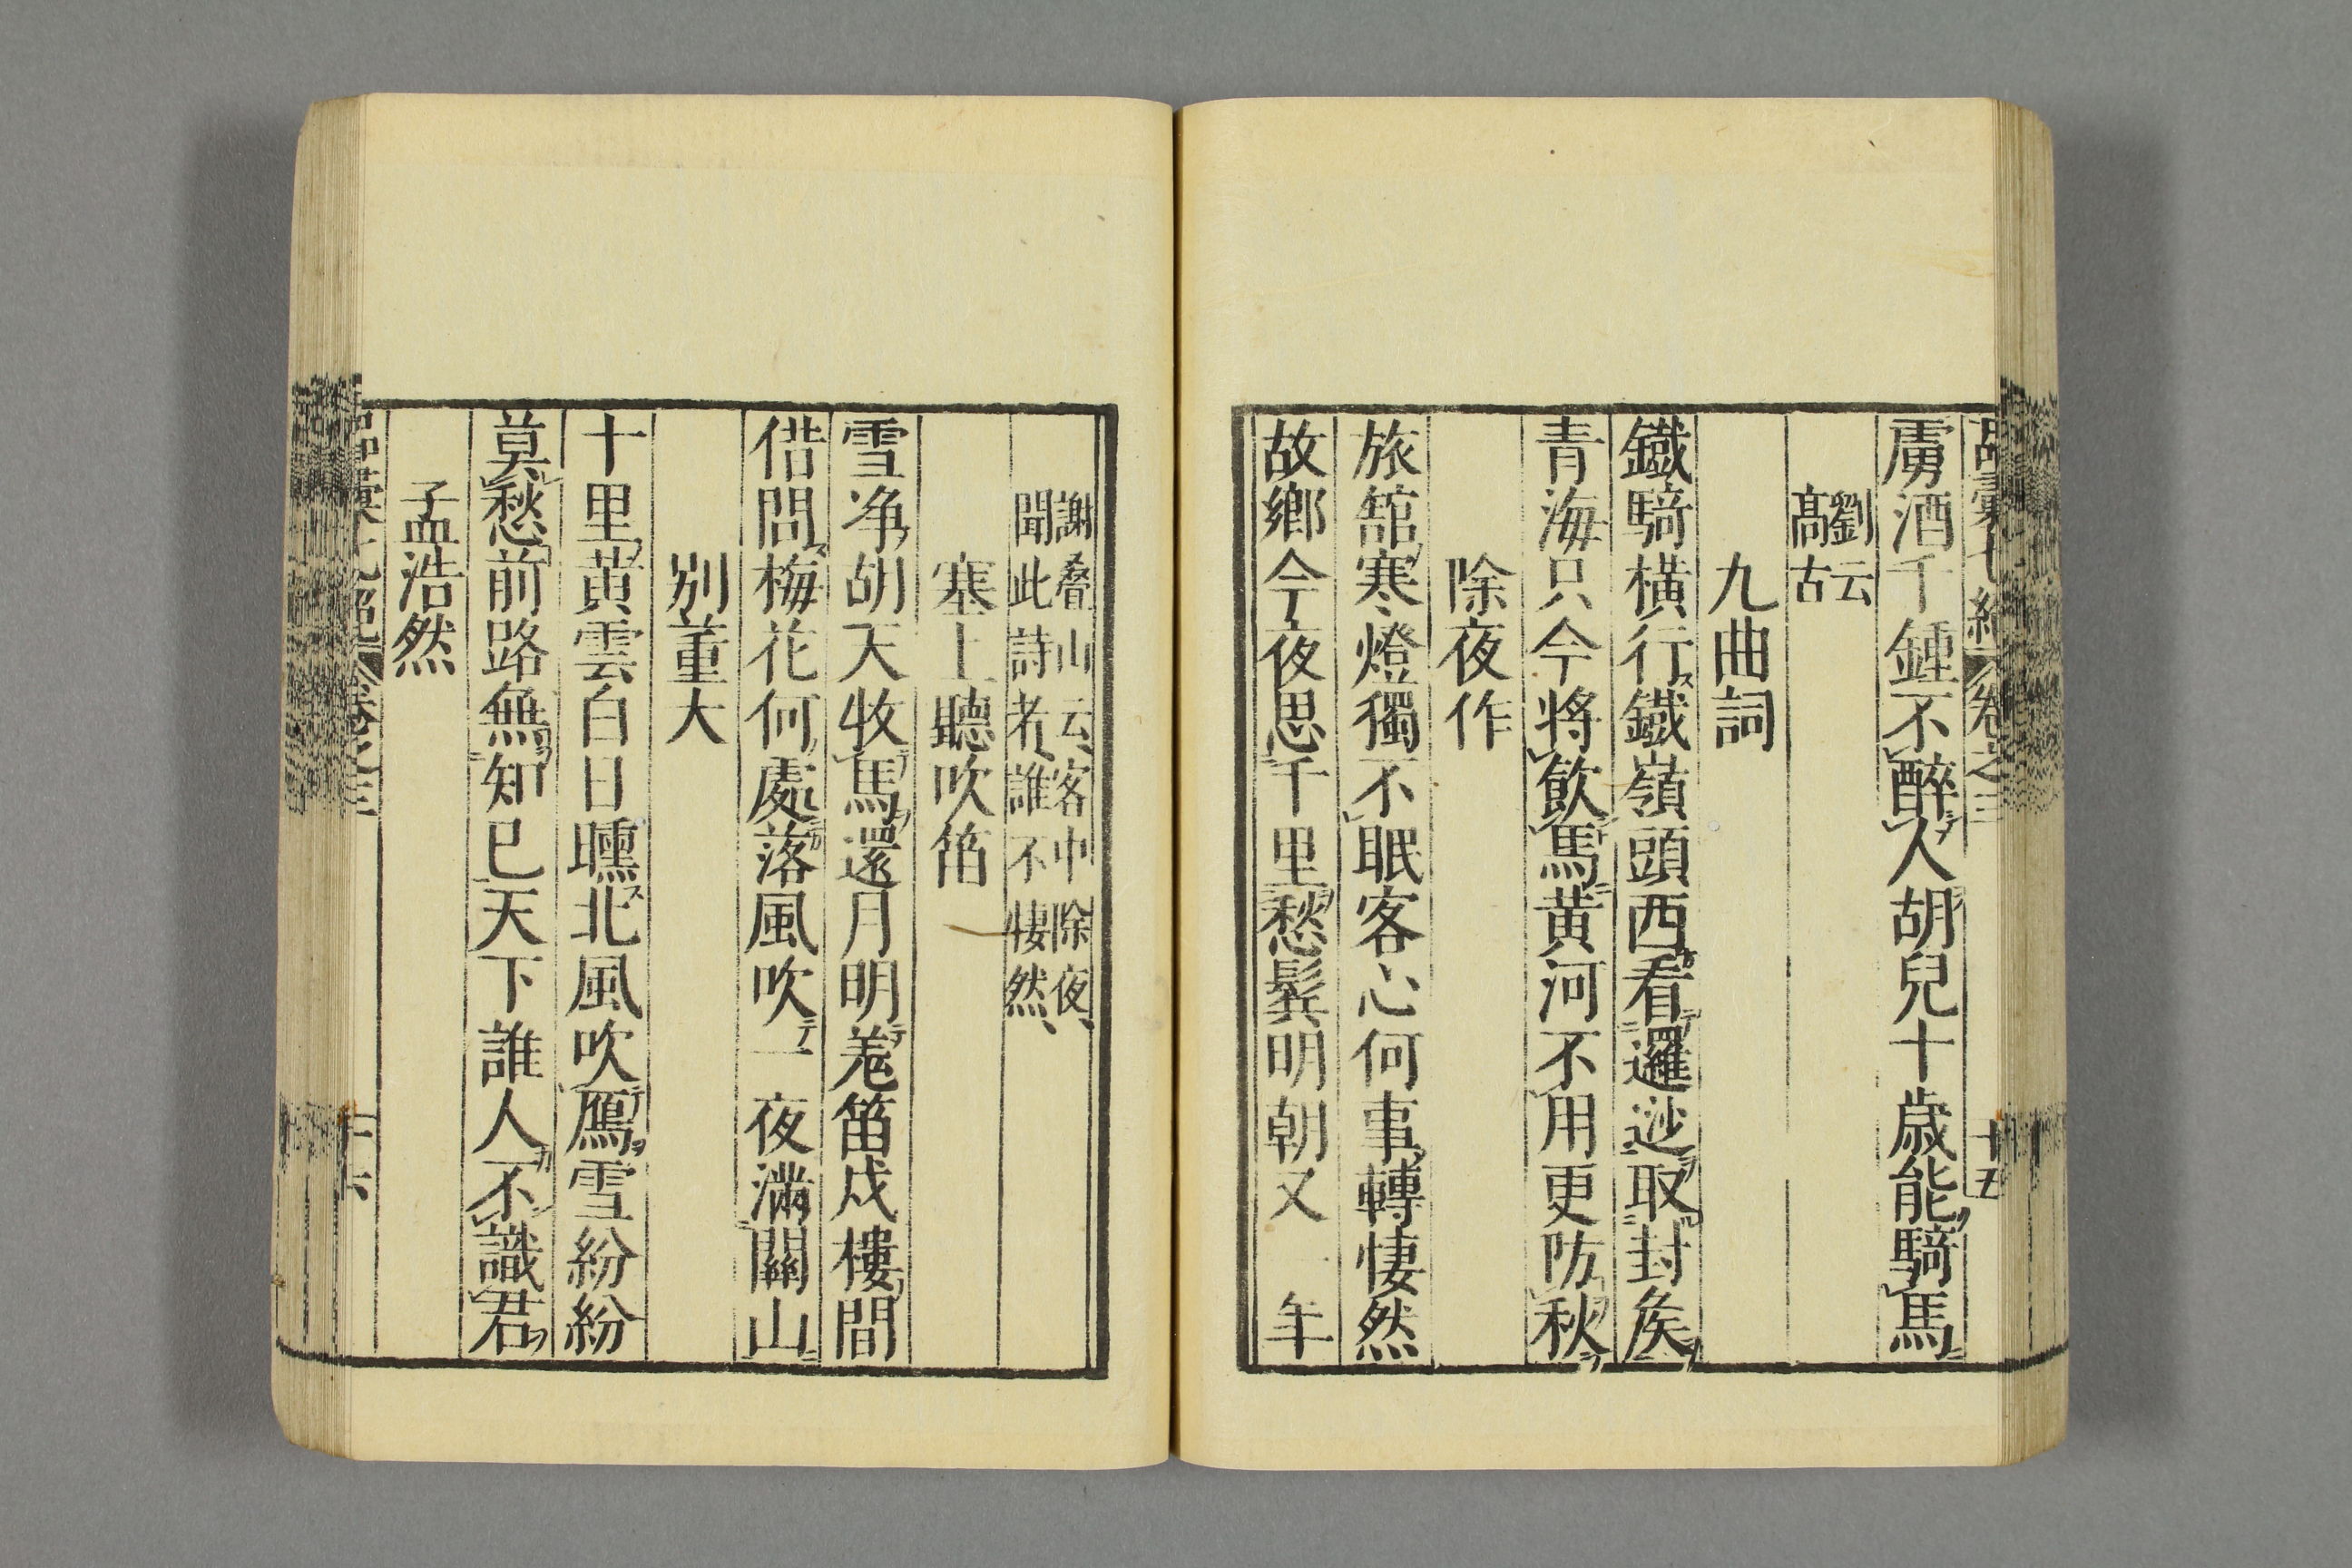 虜酒千鍾不醉人胡兒十歳能騎馬
劉云
髙古
九曲詞
鐵騎橫行鐵嶺頭西看邏逤取封矦
青海只今將飲馬黄河不用更防秋
除夜作
旅舘寒燈獨不眠客心何事轉悽然
故鄉今夜思千里愁鬂明朝又一年
謝叠山云客中除夜
聞此詩者誰不悽然
塞上聽吹笛
雪净胡天牧馬還月明羗笛戍樓間
借問梅花何處落風吹一夜滿關山
別董大
十里黄雲白日曛北風吹鴈雪紛紛
莫愁前路無知已天下誰人不識君
孟浩然